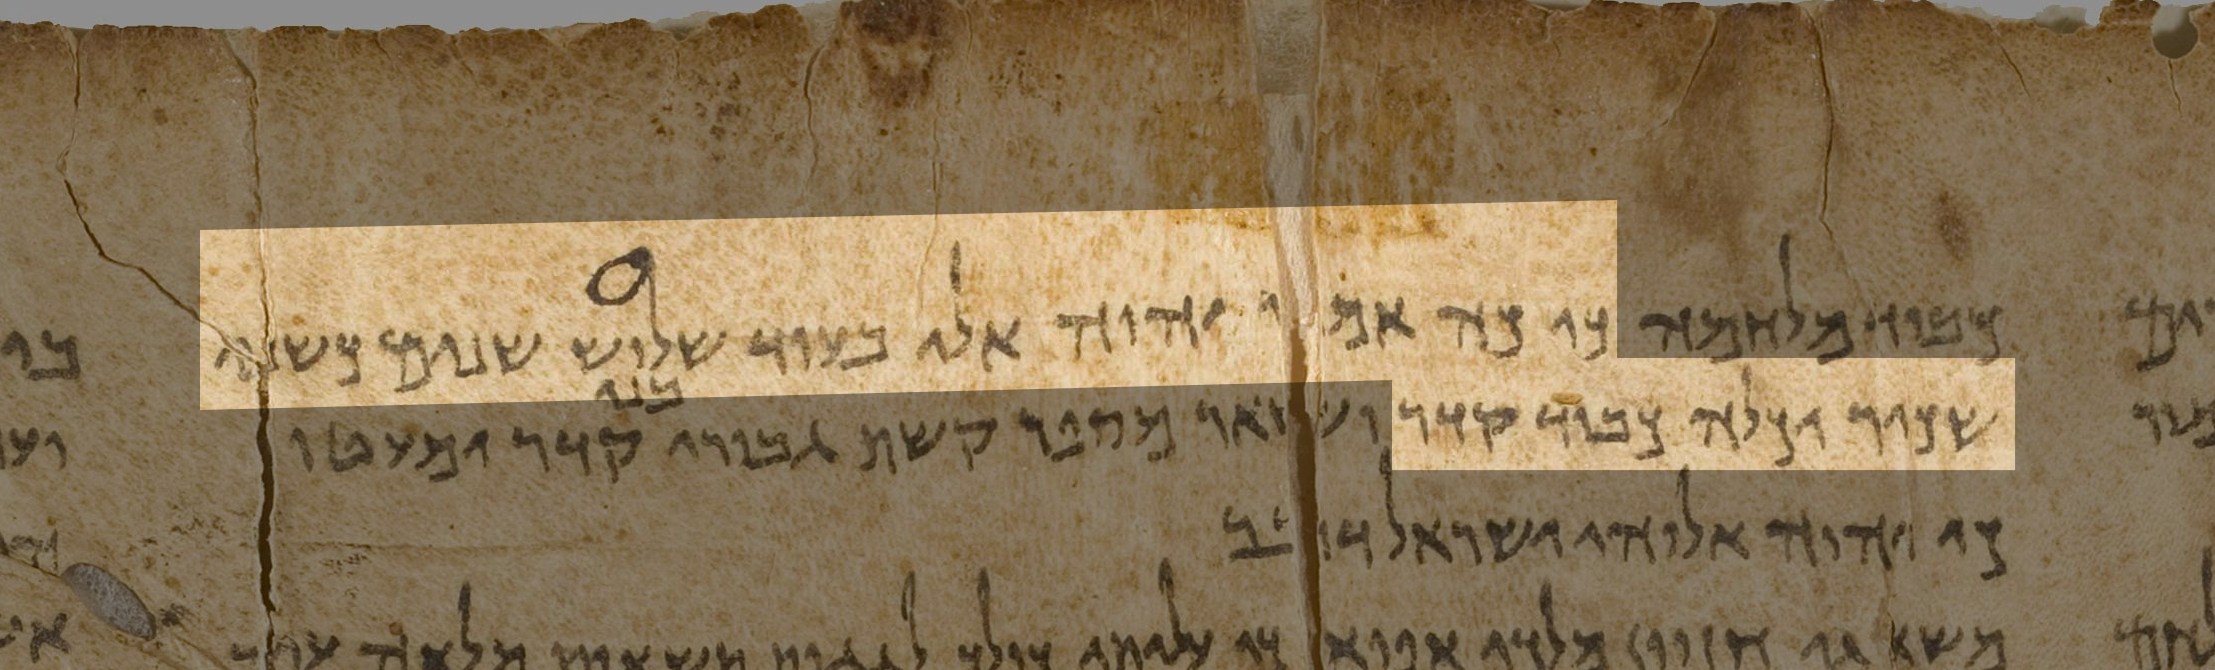 כבוד מלחמה כי כה אמר יהוה אלי בעוד שלוש שנים כשני
בני
שכיר וכלה כבוד קדר ושאר מספר קשת גבורי קדר ימעטו
כי יהוה אלוהי ישראל דבר
משא גי חזיון מלכי אפוא כי עליתי כולך לגגות תשאות מלאה עיר